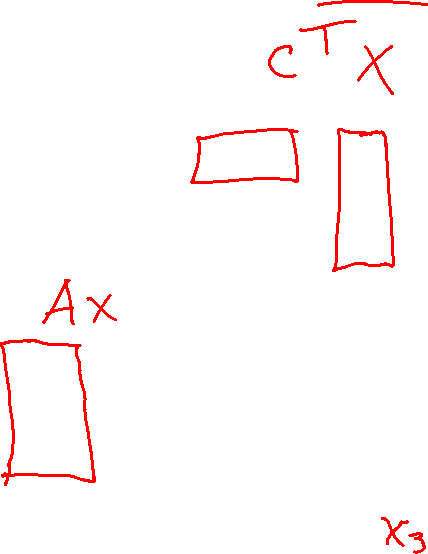 c^T x
Ax
x_3